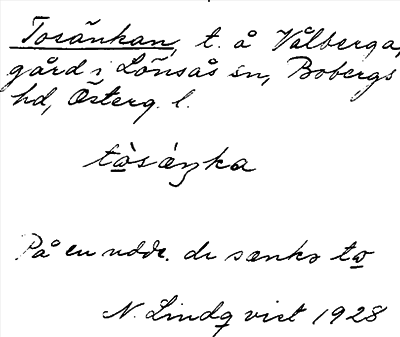 Torsänkan, t. å Vålberga,
gård i Lönsås sn, Bobergs
hd, Österg. l.
tòsáŋka
På en udde. de sænks to
N. Lindqvist 1928